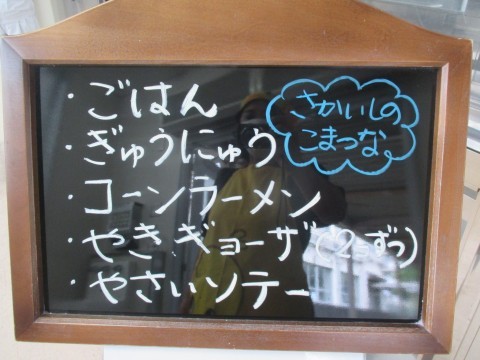 ・ごはん
・ぎゅうにゅう
・コーンラーメン
・やきギョーザ(2こずつ)
・やさいソテー
さかいしの
こまつな